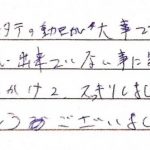 タテの動きが大事で
い出来ていない事に
かけて、スッキリしまし
うございまし